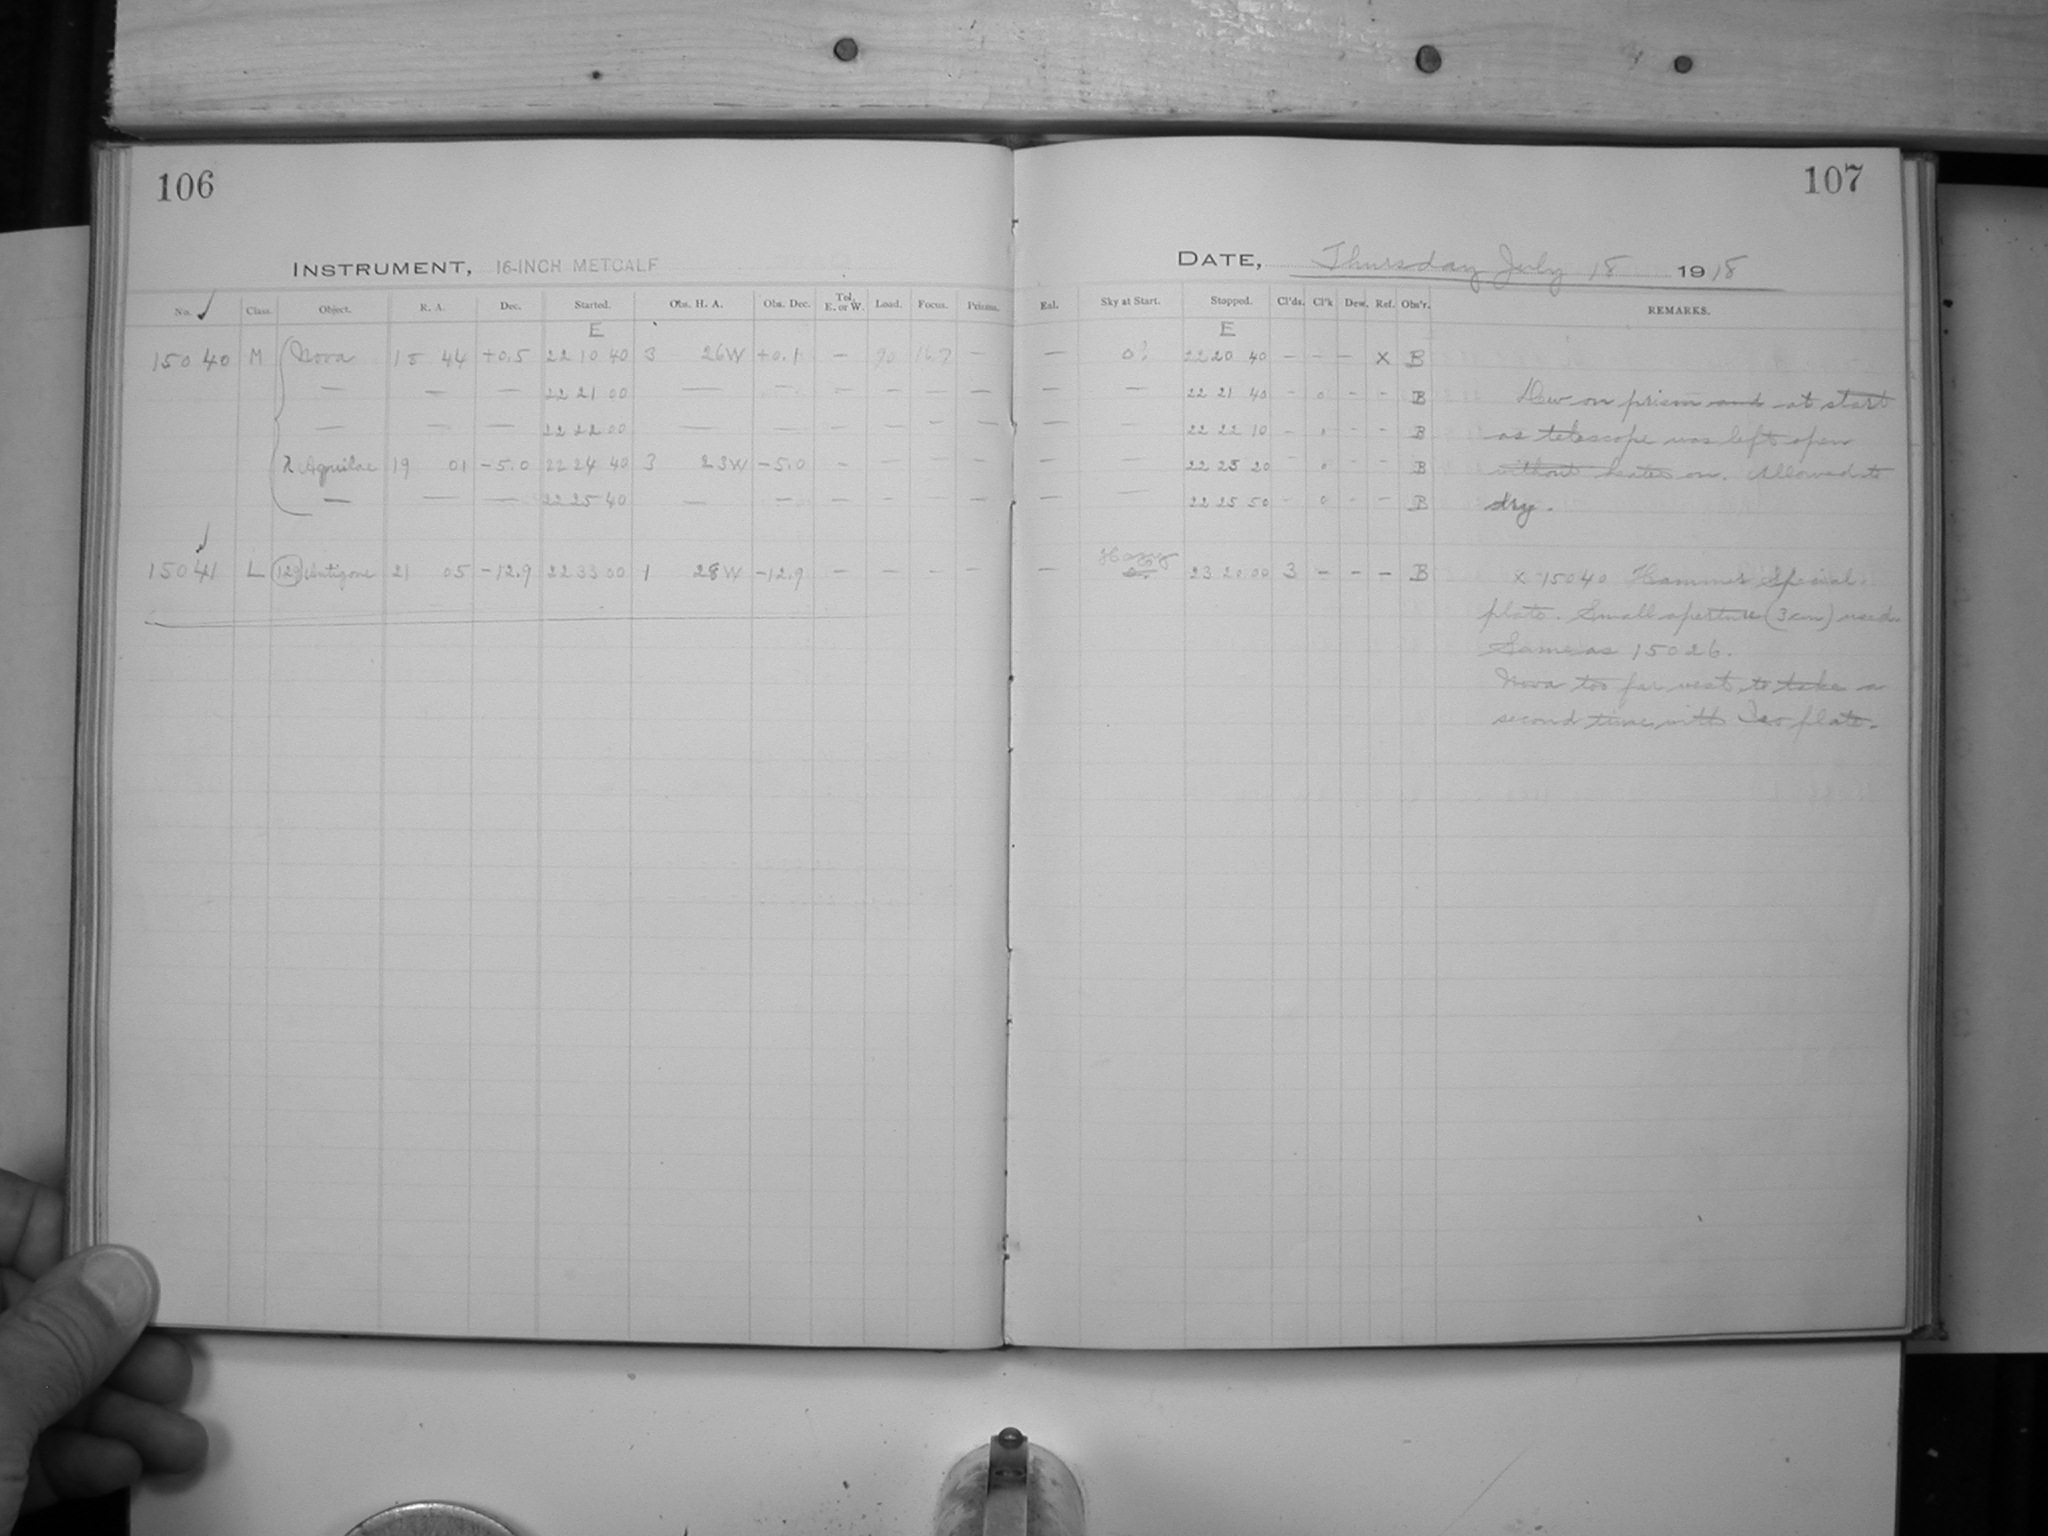 106
INSTRUMENT, 16-INCH METCALF
No. Class. Object. R. A. Dec. Started. Obs. H. A. Obs. Dec. Tel. E. or W. Load. Focus. Prisms.
E
15040 M Nova 18 44 +0.5 22 10 40 3 26W +0.1 — 90 16.7 —
— — — 22 21 00 — — — — — —
— — — 22 22 00 — — — — — —
λ Aquilae 19 01 -5.0 22 24 40 3 23W -5.0 — — — —
— — — 22 25 40 — — — — — —
15041 L (129) Antigone 21 05 -12.9 22 33 00 1 28W -12.9 — — — —
107
DATE, Thursday July 18 1918
Eal. Sky at Start. Stopped. Cl'ds. Cl'k Dew. Ref. Obs'r. REMARKS.
E
— 0? 22 20 40 - - - x B
— — 22 21 40 - 0 - - B Dew on prism and at start
— — 22 22 10 - 0 - - B as telescope was left open
— — 22 25 20 - 0 - - B without heater on. Allowed to
— — 22 25 50 - 0 - - B dry.
— Hazy 23 20 00 3 - - - B x 15040 Hammer Special
plate. Small aperture (3cm) used.
Same as 15026.
Nova too far west, to take a
second time with Iso plate.